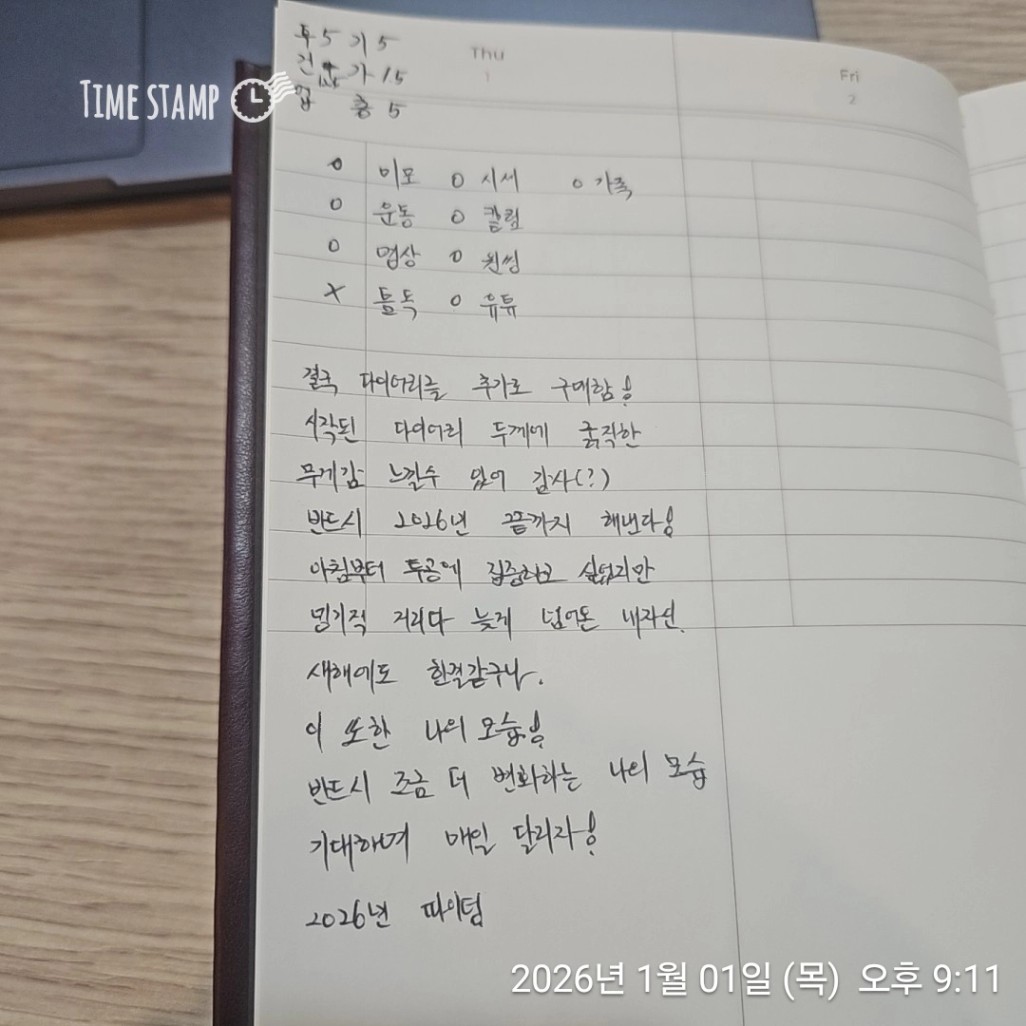 투5 기5
Thu
1
Fri
2
건 가15
업 총5
TIME STAMP
o 미모 o 시세 o 가족
o 운동 o 칼럼
o 명상 o 원씽
x 틈독 o 유튜
결국 다이어리를 추가로 구매함!
시작된 다이어리 두께에 굵직한
무게감 느낄수 있어 감사(?)
반드시 2026년 끝까지 해낸다!
아침부터 투공에 집중하고 싶었지만
밍기적 거리다 늦게 넘어온 내자신.
새해에도 한결같구나.
이 또한 나의 모습!
반드시 조금 더 변화하는 나의 모습
기대하며 매일 달리자!
2026년 따이텀
2026년 1월 01일 (목) 오후 9:11